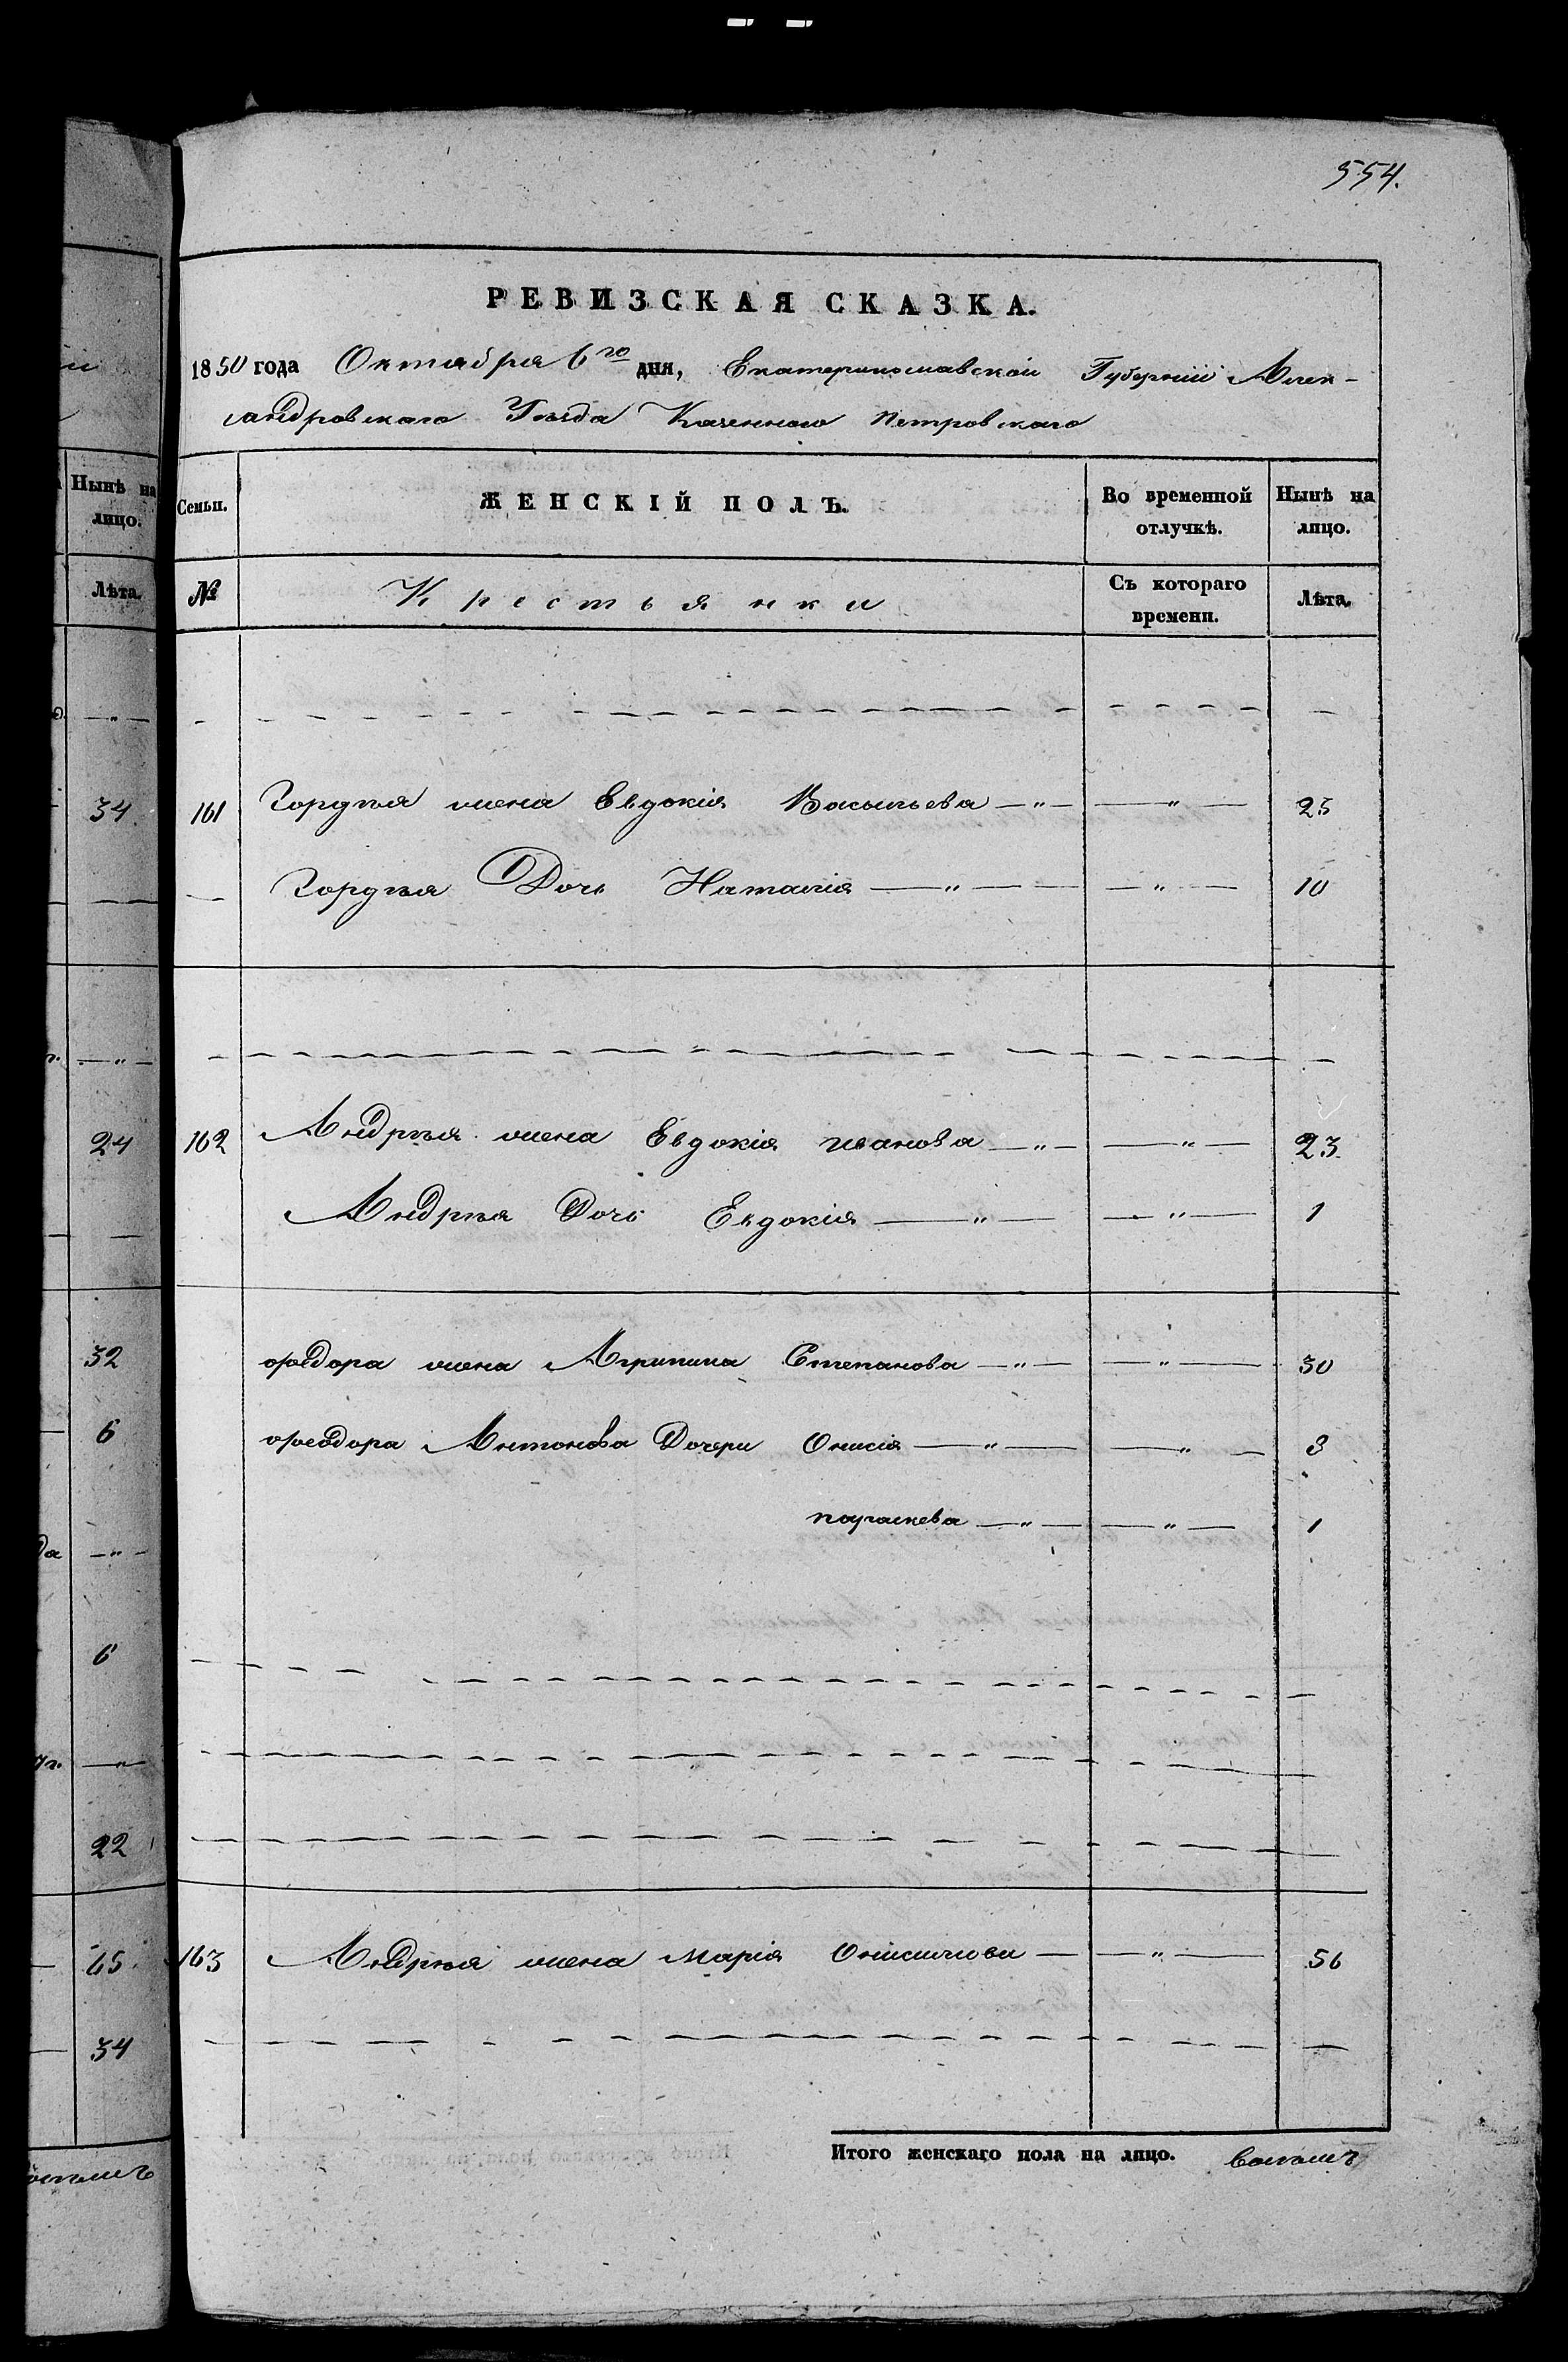 554.
РЕВИЗСКАЯ СКАЗКА.
1850 года Октября 6го дня, Екатеринославской Губерніи Алек-
сандровскаго Уѣзда Казеннаго Петровскаго
Нынѣ на лицо.
Лѣта.
Семьи. ЖЕНСКІЙ ПОЛЪ. Во временной отлучкѣ. Нынѣ на лицо.
№ Крестьянки Съ котораго времени. Лѣта.
34 161 Гордѣя жена Евдокія Васильева — " — — " — 25
Гордѣя Дочь Наталія — " — — " — 10
24 162 Андрѣя жена Евдокія Иванова — " — — " — 23
Андрѣя Дочь Евдокія — " — — " — 1
32 Ѳеодора жена Агрипина Степанова — " — — " — 30
6 Ѳеодора Антонова Дочери Онисія — " — — " — 3
параскева — " — — " — 1
да — " —
6
22
65 163 Андрѣя жена Марія Онисимова — — " — 56
34
Итого женскаго пола на лицо. восемь